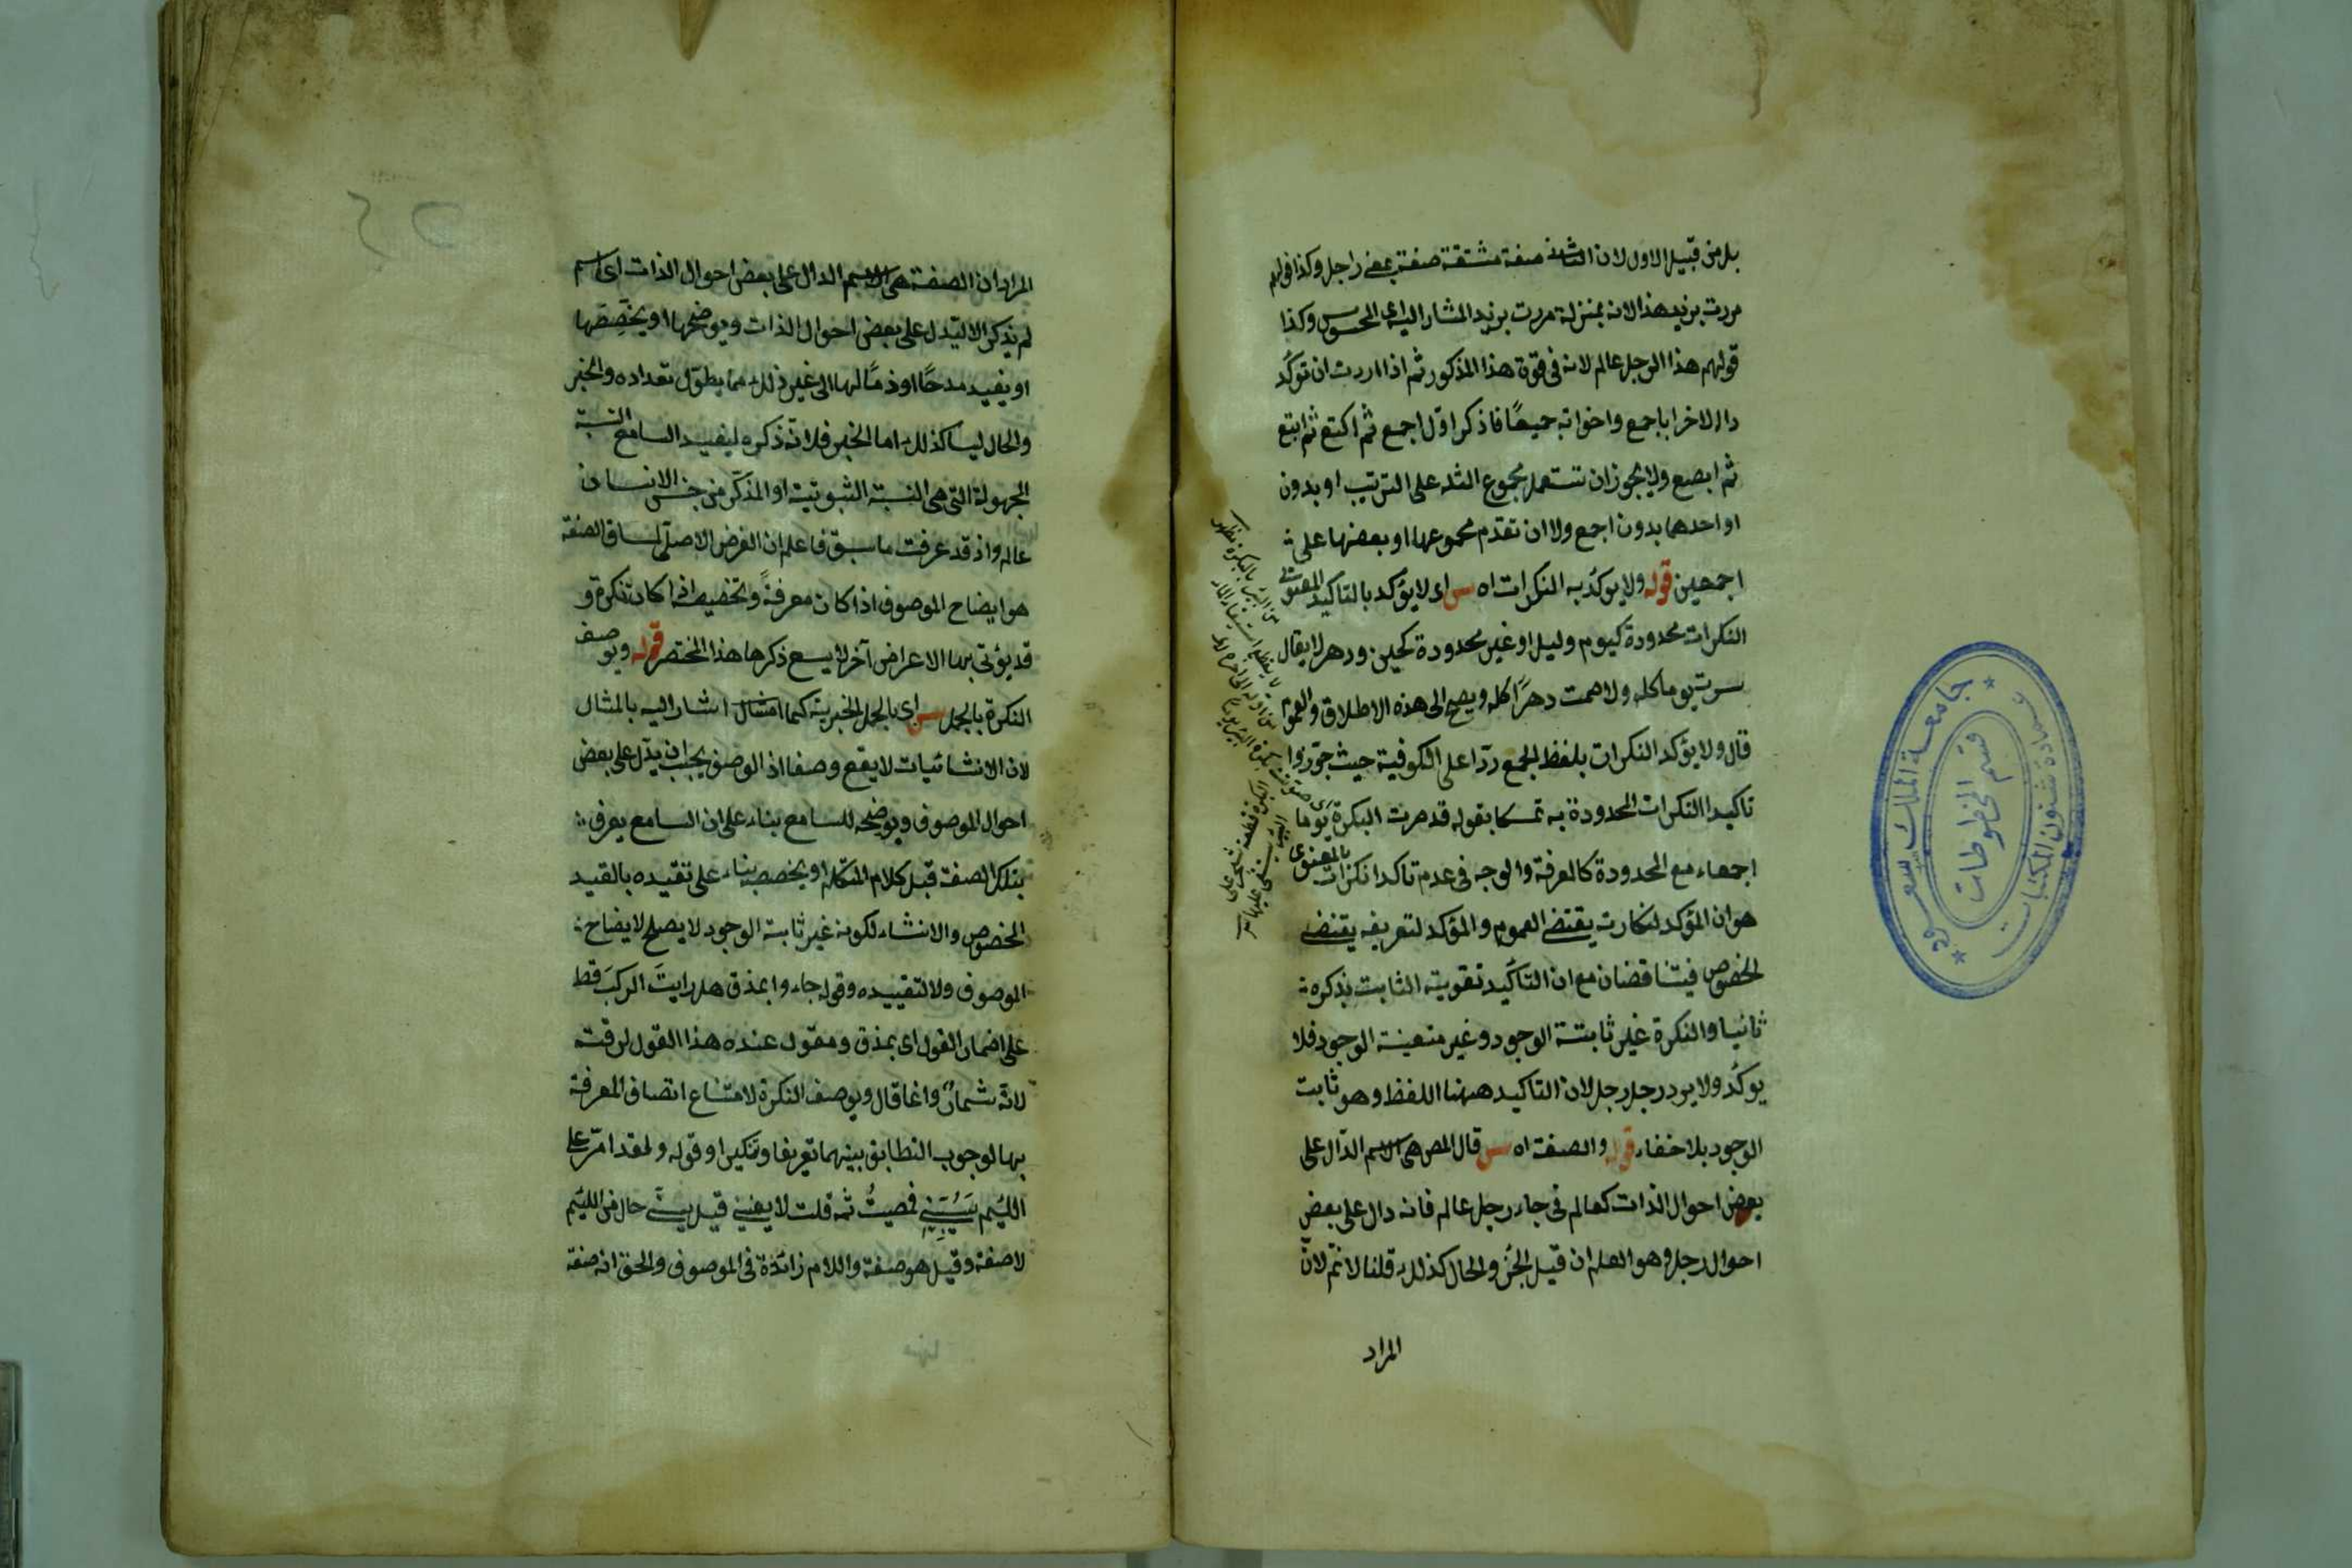 بل من قبيل الاول لان الثانى صفة مشتقة صفته بمعنى راجل وكذا قولهم
مررت بزيد هذا لانه بمنزلة مررت بزيد المشار اليه اى المحسوس وكذا
قولهم هذا الرجل عالم لانه فى قوة هذا المذكور ثم اذا اردت ان توكد
دار الاخر اباجمع واخواته جميعًا فاذكر اوّل اجمع ثم اكتع ثم ابتع
ثم ابصع ولا يجوز ان تستعمل مجموع الثلثه على الترتيب او بدون
او احدها بدون اجمع ولا ان تقدم مجموعها او بعضها على
اجمعين قوله ولا يوكد به النكرات اه س اى لا يؤكد بالتاكيد المعنوى
النكرات محدودة كيوم وليل او غير محدودة كحين ودهر لا يقال
سرت يوما كله ولا صمت دهرًا كله ويصح الى هذه الاطلاق والعموم
قال ولا يؤكد النكرات بلفظ الجمع ردّا على الكوفية حيث جوّزوا
تاكيد النكرات المحدودة به تمسكا بقوله قد صرت البكرة يوما
اجمعاء مع المحدودة كالمعرفة والوجه فى عدم تاكد النكرات بالمعنوى
هو ان المؤكد لنكارته يقتضى العموم والمؤكد لتعريفه يقتضى
الخصوص فيتناقضان مع ان التاكيد تقوية الثابت بذكره
ثانيا والنكرة غير ثابتة الوجود وغير متعينة الوجود فلا
يوكد ولا يرد رجل رجل لان التاكيد ههنا اللفظ وهو ثابت
الوجود بلا خفاء قوله والصفة اه س قال المص هى الاسم الدّال على
بعض احوال الذات كعالم فى جاء رجل عالم فانه دال على بعض
احوال رجل وهو العلم ان قيل الخبر والحال كذلك قلنا لا نم لانّ
المراد
جامعة الملك سعود
عمادة شئون المكتبات
قسم المخطوطات
٥٢
المراد ان الصفة هى الاسم الدال على بعض احوال الذات اى اسم
لم يذكر الا ليدل على بعض احوال الذات ويوضحها او يخصصها
او يفيد مدحًا او ذمًا لها الى غير ذلك مما يطول تعداده والخبر
والحال ليسا كذلك اما الخبر فلانّه ذكره ليفيد السامع النسبة
المجهولة التى هى النسبة الثبوتية او المذكّر من جنس الانسان
عالم واذ قد عرفت ما سبق فاعلم ان الغرض الاصلى لمساق الصفة
هو ايضاح الموصوف اذا كان معرفةً وتخصيصه اذا كان نكرة و
قد يؤتى بها لاغراض آخر لا يسع ذكرها هذا المختصر قوله ويوصف
النكرة بالجمل س اى بالجمل الخبرية كما اشار اليه بالمثال
لان الانشائيات لا يقع وصفا اذ الوصف يجب ان يدّل على بعض
احوال الموصوف ويوضحه للسامع بناء على ان السامع يعرف
بتلك الصفة قبل كلام المتكلم او يخصصه بناء على تقيده بالقيد
المخصوص والانشاء لكونه غير ثابتة الوجود لا يصلح لايضاح
الموصوف ولا لتقييده وقوله جاءوا بمذق هل رايت الركب قط
على اضمار القول اى بمذق ومقول عنده هذا القول لرقته
لانّه شمان وانما قال ويوصف النكرة لامتناع اتصاف المعرفة
بها لوجوب التطابق بينهما تعريفا وتنكيرا وقوله ولقد امرّ على
اللئيم يسُبّنى فمضيتُ ثمه قلت لا يعنينى قيل يسبّنى حال من اللئيم
لا صفة وقيل هو صفة واللام زائدة فى الموصوف والحق انه صفة
منها